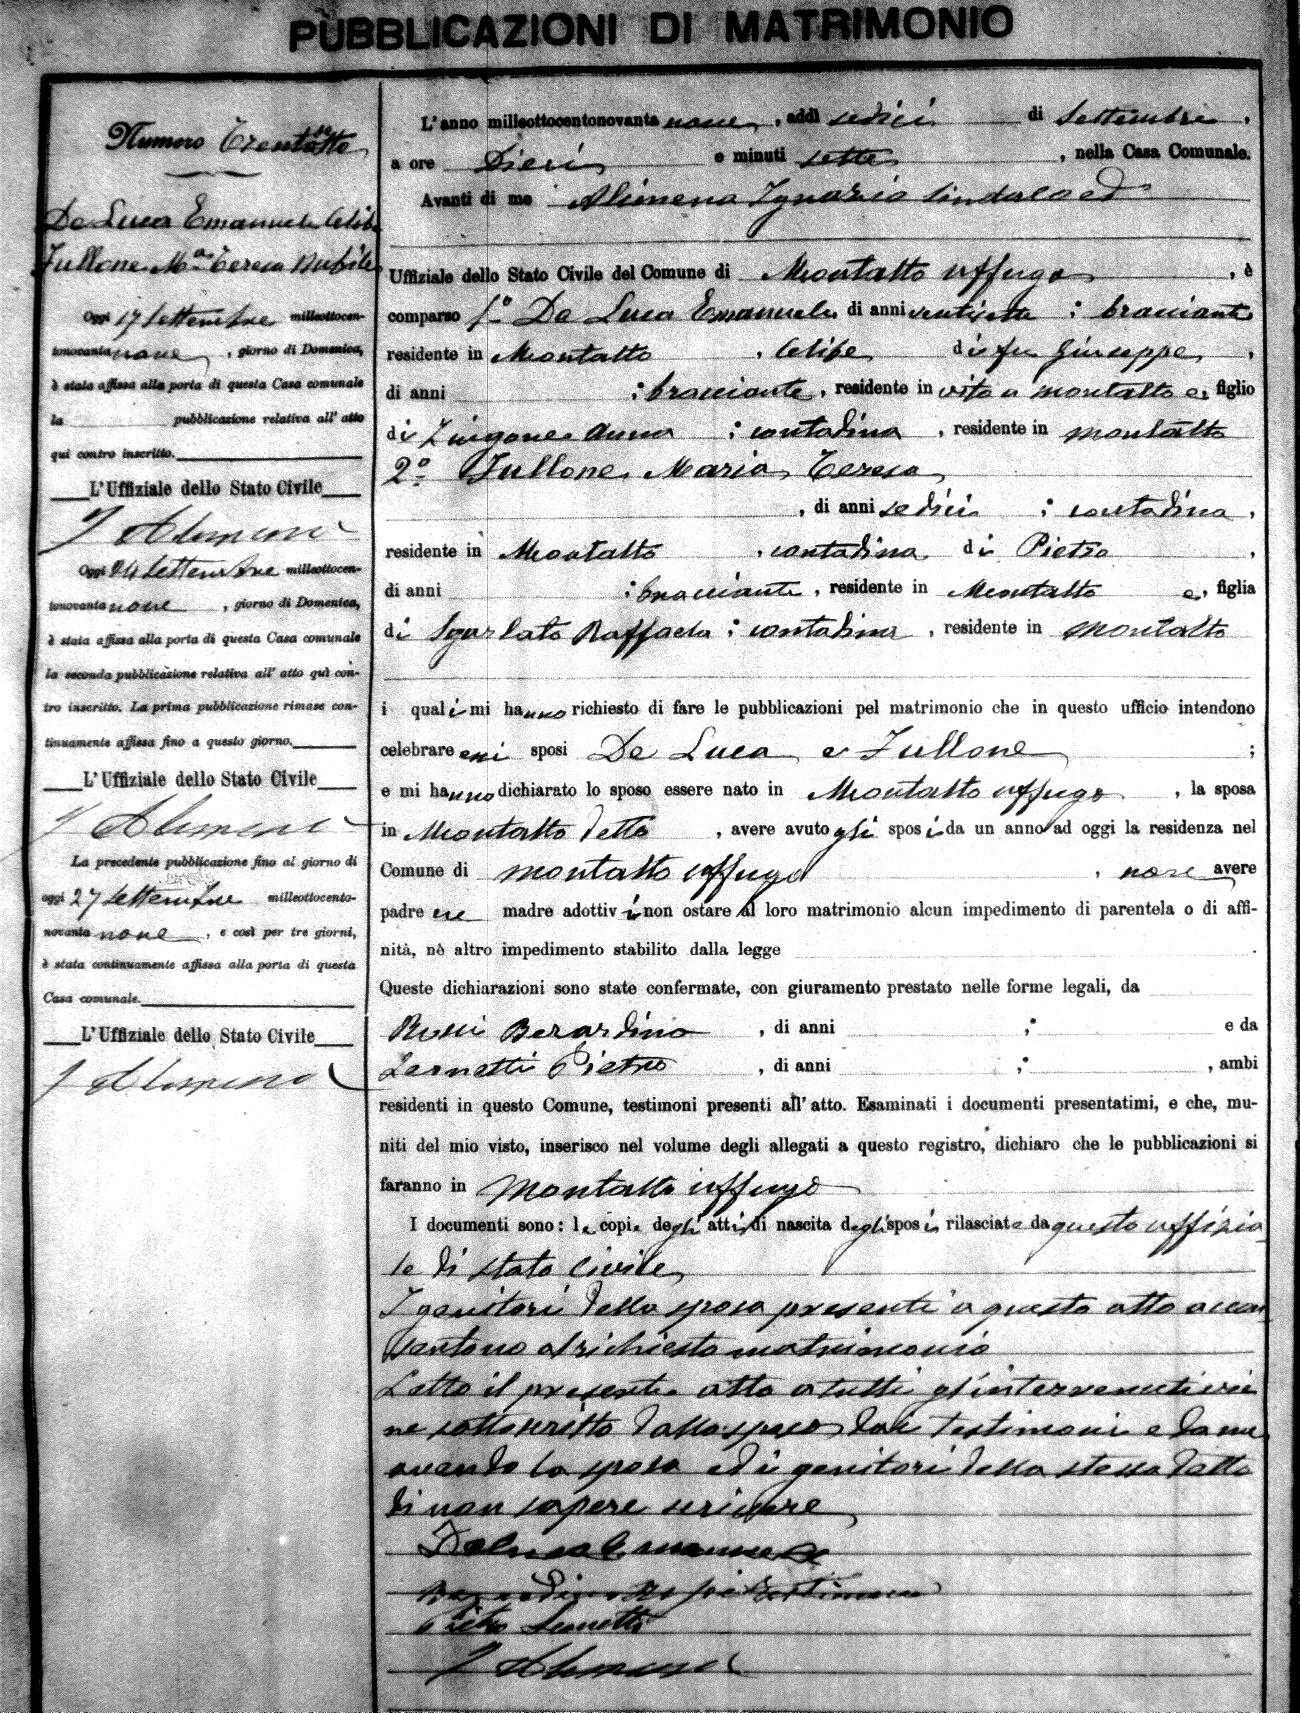 PUBBLICAZIONI DI MATRIMONIO
Numero Trentasette
De Luca Emanuele Celibe
Fullone Mª Teresa Nubile
Oggi 17 Settembre milleottocen-
tonovanta nove, giorno di Domenica,
è stata affissa alla porta di questa Casa comunale
la pubblicazione relativa all' atto
qui contro inscritto.
L'Uffiziale dello Stato Civile
I Alimena
Oggi 24 Settembre milleottocen-
tonovanta nove, giorno di Domenica,
è stata affissa alla porta di questa Casa comunale
la seconda pubblicazione relativa all' atto quì con-
tro inscritto. La prima pubblicazione rimase con-
tinuamente affissa fino a questo giorno.
L'Uffiziale dello Stato Civile
I Alimena
La precedente pubblicazione fino al giorno di
oggi 27 Settembre milleottocento-
novanta nove, e così per tre giorni,
è stata continuamente affissa alla porta di questa
Casa comunale.
L'Uffiziale dello Stato Civile
I Alimena
L'anno milleottocentonovanta nove, addì sedici di Settembre,
a ore Dieci e minuti sette, nella Casa Comunale.
Avanti di me Alimena Ignazio Sindaco ed
Uffiziale dello Stato Civile del Comune di Montalto Uffugo, è
comparso 1º De Luca Emanuele di anni ventisette; bracciante
residente in Montalto, Celibe di fu Giuseppe,
di anni ; bracciante, residente in vita a Montalto e, figlio
di Zingone Anna; contadina, residente in Montalto
2º Fullone Maria Teresa
, di anni sedici; contadina,
residente in Montalto, contadina di Pietro,
di anni ; bracciante, residente in Montalto e, figlia
di Sgarlato Raffaela; contadina, residente in Montalto
i quali mi hanno richiesto di fare le pubblicazioni pel matrimonio che in questo ufficio intendono
celebrare essi sposi De Luca e Fullone;
e mi hanno dichiarato lo sposo essere nato in Montalto Uffugo, la sposa
in Montalto detto, avere avuto gli sposi da un anno ad oggi la residenza nel
Comune di Montalto Uffugo, non avere
padre ne madre adottivi non ostare al loro matrimonio alcun impedimento di parentela o di affi-
nità, nè altro impedimento stabilito dalla legge.
Queste dichiarazioni sono state confermate, con giuramento prestato nelle forme legali, da
Berardino, di anni ; e da
Pietro, di anni ; , ambi
residenti in questo Comune, testimoni presenti all' atto. Esaminati i documenti presentatimi, e che, mu-
niti del mio visto, inserisco nel volume degli allegati a questo registro, dichiaro che le pubblicazioni si
faranno in Montalto Uffugo
I documenti sono: le copie degli atti di nascita degli sposi rilasciate da questo uffizia
le di stato civile
I genitori della sposa presenti a questo atto accon
sentono al richiesto matrimonio
Letto il presente atto a tutti gl'intervenuti vie
ne sottoscritto dallo sposo dai testimoni e da me
avendo la sposa ed i genitori della stessa detto
di non sapere scrivere
De luca Emanuele
testimone
Pietro
I Alimena